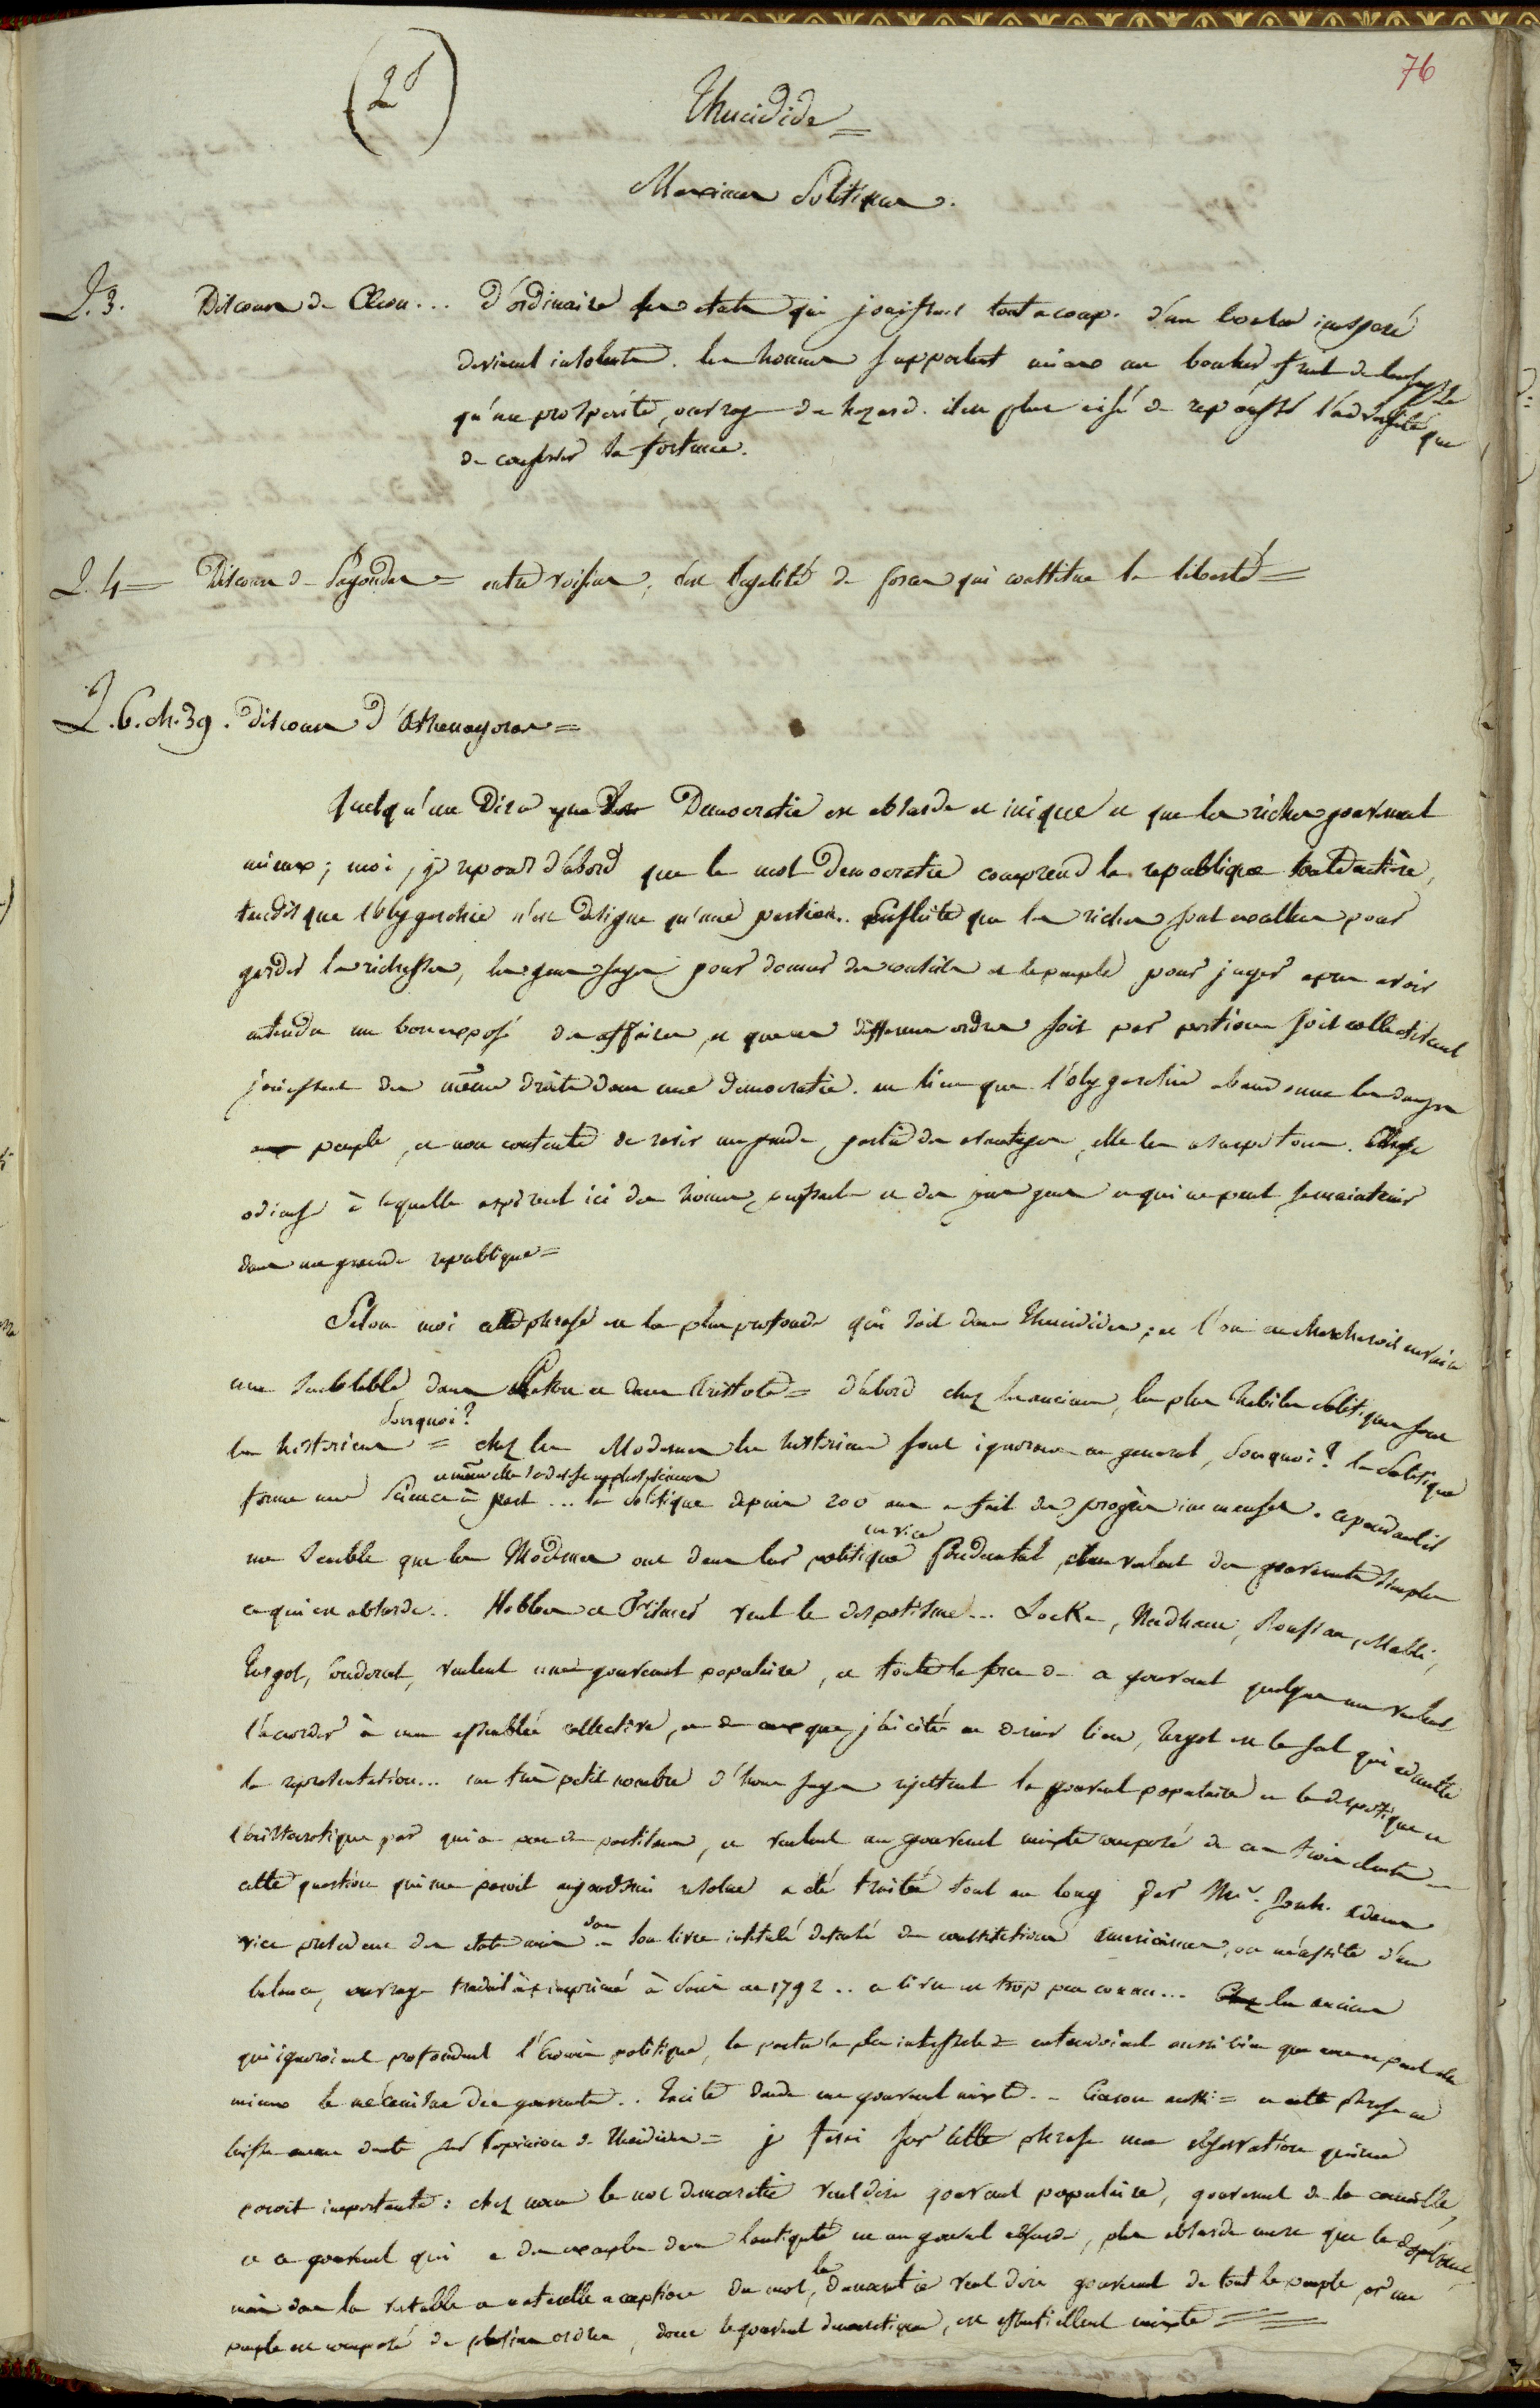 76
(2d)
Thucidide =
Maximes Politiques.
L. 3. Discours de Cleon... d'ordinaire les etats qui jouissent tout a coup d'un bonheur inesperé
deviennent insolents. les hommes supportent mieux un bonheur fruit de la sagesse
qu'une prosperité, ouvrage du hazard. il est plus aisé de repousser l'adversité que
de conserver la fortune.
L. 4 = Discours de Pagondas = entre voisins, c'est l'egalité de forces qui constitue la liberté =
L. 6. ch. 39. discours d'Athenagoras =
Quelqu'un dira que la Democratie est absurde et inique et que les riches gouvernent
mieux ; moi, je repons d'abord que le mot Democratie comprend la republique toute entière,
tandis que l'olygarchie n'en designe qu'une portion.. Ensuite que les riches sont excellens pour
garder les richesses, les gens sages pour donner des conseils et le peuple pour juger apres avoir
entendu un bon exposé des affaires, et que ces differens ordres soit par portions soit collectivement
jouissent des mêmes droits dans une democratie. au lieu que l'olygarchie abandonne les dangers
au peuple, et non contente de ravir une grande partie des avantages, elle les usurpe tous.
odieux à laquelle aspirent ici des hommes puissants et des jeunes gens et qui ne peut se maintenir
dans une grande republique =
Selon moi cette phrase est la plus profonde qui soit dans Thucidides ; et l'on en chercheroit en vain
une semblable dans Platon et dans Aristote = d'abord chez les anciens, les plus habiles politiques sont
les historiens = pourquoi? chez les Modernes les historiens sont ignorans en general, pourquoi? la politique
forme une science à part ... la politique depuis 200 ans a fait des progrès immenses. cependant il
me semble que les Modernes ont dans leur politique un vice fondamental, ils veulent des gouvernements simples
ce qui est absurde.. Hobbes et Filmer veut le despotisme... Locke, Nedham, Rousseau, Mabli,
Turgot, Condorcet, veulent un gouvernement populaire, et toute la force de ce gouvernement quelques uns veulent
l'accorder à une assemblée collective, et de ceux que j'ai cités en dernier lieu, Turgot est le seul qui admette
la representation... un très petit nombre d'hommes sages rejettent le gouvernement populaire et le despotique et
l'aristocratique qui a peu de partisans, et veulent un gouvernement mixte composé de ces trois elements
cette question qui me paroit aujourdhui resolue a été traitée tout au long par Mr. John Adams
vice president des etats unis dans son livre intitulé defense des constitutions americaines, ou necessité d'une
balance, ouvrage traduit et imprimé à Paris en 1792.. ce livre est trop peu connu... les anciens
qui ignoroient profondement l'économie politique, la partie la plus interessante = entendoient aussi bien que nous et peut etre
mieux le mécanisme des gouvernements.. Tacite dans un gouvernement mixte.. Ciceron aussi = et cette phrase ne
laisse aucun doute sur l'opinion de Thucidides = je ferai sur cette phrase une observation qui me
paroit importante : chez nous le mot democratie veut dire gouvernement populaire, gouvernement de la canaille,
et ce gouvernement qui a des exemples dans l'antiquité est un gouvernement absurde, plus absurde encore que le despotisme,
mais dans la veritable et naturelle acception du mot, la democratie veut dire gouvernement de tout le peuple, or un
peuple est composé de plusieurs ordres, donc le gouvernement democratique, est essentiellement mixte =